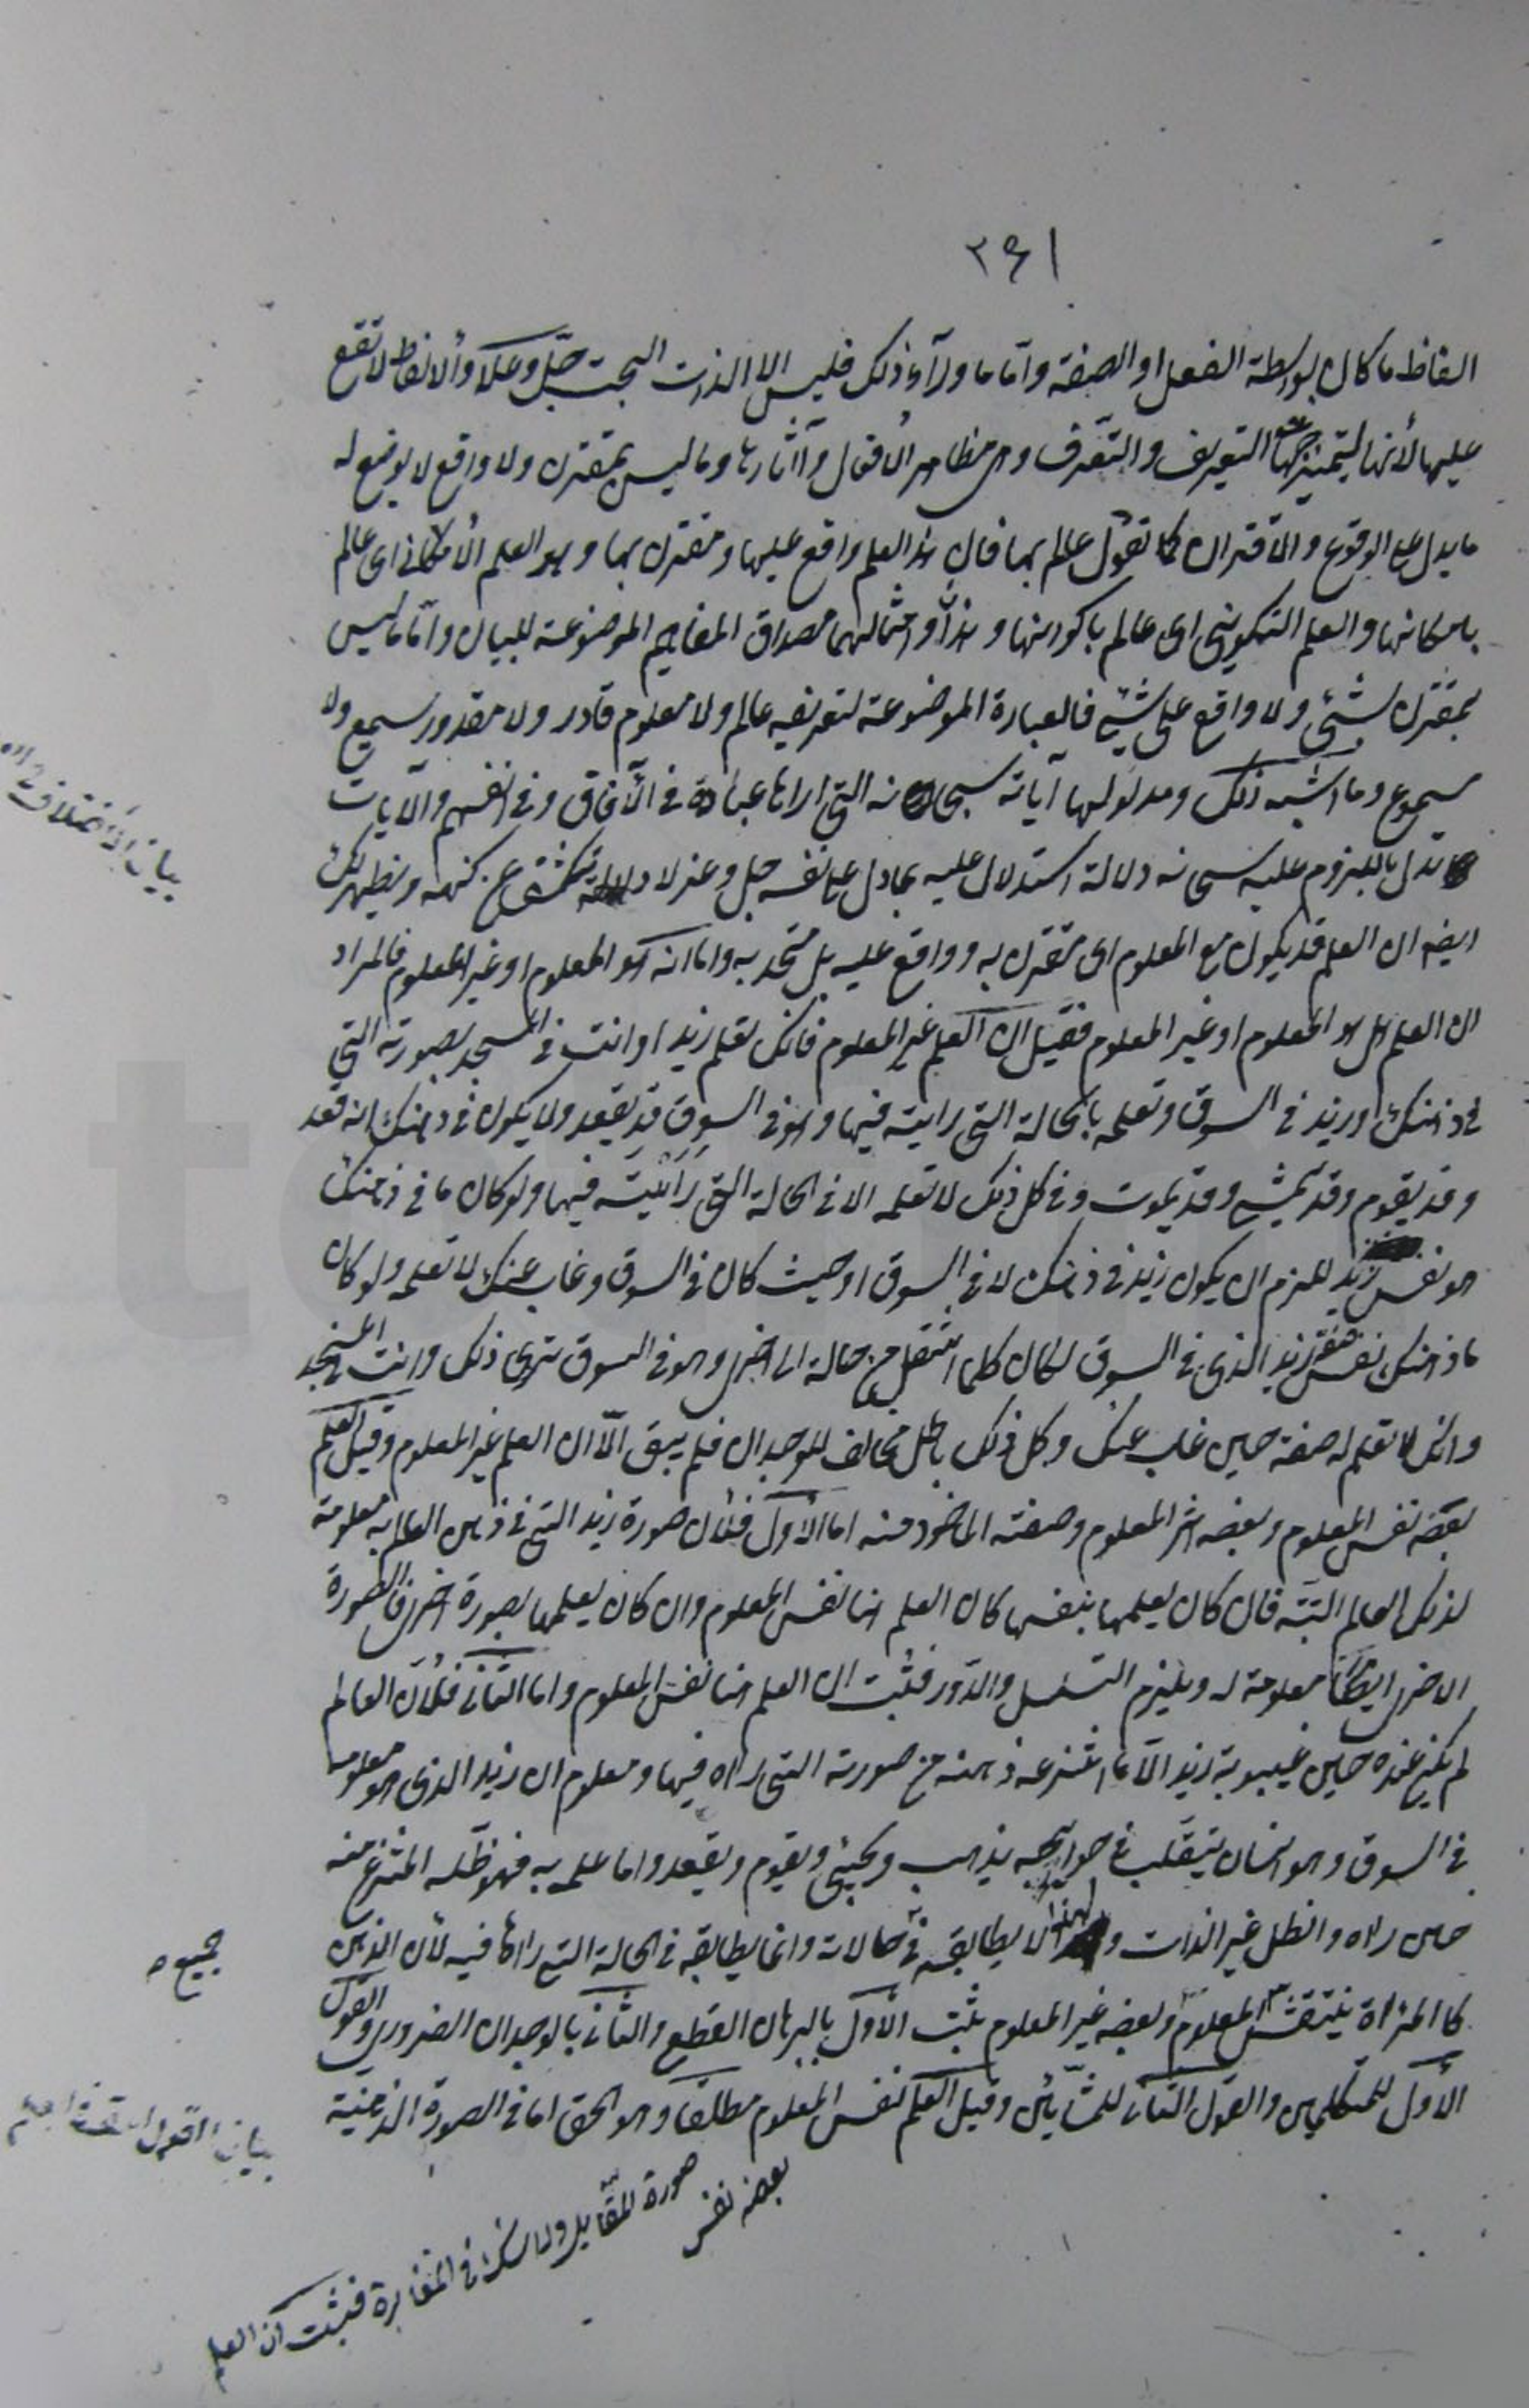 ٢٤١
الفاظ ما كان بواسطة الفعل او الصفة واما ما ورآء ذلك فليس الا الذات البحت جل وعلا والالفاظ لا تقع
عليها لأنها لتمييز جهات التعريف والتعرف وهى مظاهر الأفعال وآثارها وما ليس بمقترن ولا واقع لا يوضع له
ما يدل على الوقوع والاقتران كما تقول عالم بها فان هذا العلم واقع عليها ومقترن بها وهو العلم الأمكانى اى عالم
بامكانها والعلم التكوينى اى عالم باكوانها وهذا وامثالهما مصداق المفاهيم الموضوعة للبيان واما ما ليس
بمقترن بشئ ولا واقع على شئ فالعبارة الموضوعة لتعريفه عالم ولا معلوم قادر ولا مقدور سميع ولا
مسموع وما اشبه ذلك ومدلولها آياته سبحانه التى اراها عباده فى الآفاق وفى انفسهم والآيات
تدل باللزوم عليه سبحانه دلالة استدلال عليه بما دل على نفسه جل وعز لا دلالة تكشف عن كنهه ويظهر لك
ايضه ان العلم قد يكون مع المعلوم اى مقترن به وواقع عليه بل متحد به واما انه هو المعلوم او غير المعلوم فالمراد
ان العلم هل هو المعلوم او غير المعلوم فقيل ان العلم غير المعلوم فانك تعلم زيدا وانت فى المسجد بصورته التى
فى ذهنك وزيد فى السوق وتعلمه بالحالة التى رايته فيها وهو فى السوق قد يقعد ولا يكون فى ذهنك انه قعد
وقد يقوم وقد يمشى وقد يموت وفى كل ذلك لا تعلمه الا فى الحالة التى رأيته فيها ولو كان ما فى ذهنك
هو نفس زيد للزم ان يكون زيد فى ذهنك لا فى السوق او حيث كان فى السوق وغاب عنك لا تعلمه ولو كان
ما فى ذهنك نفس زيد الذى فى السوق لكان كلما انتقل من حالة الى اخرى وهو فى السوق ترى ذلك وانت فى المسجد
وانك لا تعلم له صفة حين غاب عنك وكل ذلك باطل مخالف للوجدان فلم يبق الا ان العلم غير المعلوم وقيل العلم
بعضه نفس المعلوم وبعضه اثر المعلوم وصفته الماخوذ منه اما الأول فلان صورة زيد التى فى ذهن العالم به معلومة
لذلك العالم البتة فان كان يعلمها بنفسها كان العلم هنا نفس المعلوم وان كان يعلمها بصورة اخرى فالصورة
الاخرى ايضا معلومة له ويلزم التسلسل والدور فثبت ان العلم هنا نفس المعلوم واما الثانى فلان العالم
لم يكن عنده حين غيبوبة زيد الا ما انتزعه ذهنه من صورته التى راه فيها ومعلوم ان زيد الذى هو معلوم
فى السوق وهو انسان يتقلب فى حوايجه يذهب ويجيئ ويقوم ويقعد واما علمه به فهو ظله المنتزع منه
حين راه والظل غير الذات ولهذا لا يطابقه فى حالاته وانما يطابقه فى الحالة التى راها فيه لأن الذهن
كالمرآة ينتقش المعلوم وبعضه غير المعلوم يثبت الأول بالبرهان القطع والثانى بالوجدان الضرورى والقول
الأول للمتكلمين والقول الثانى للمشائين وقيل العلم نفس المعلوم مطلقا وهو الحق اما فى الصورة الذهنية
بيان الاختلاف
جميع
بيان القول
صورة المقابل ولا شك فى المغايرة فثبت ان العلم
بعضه نفس